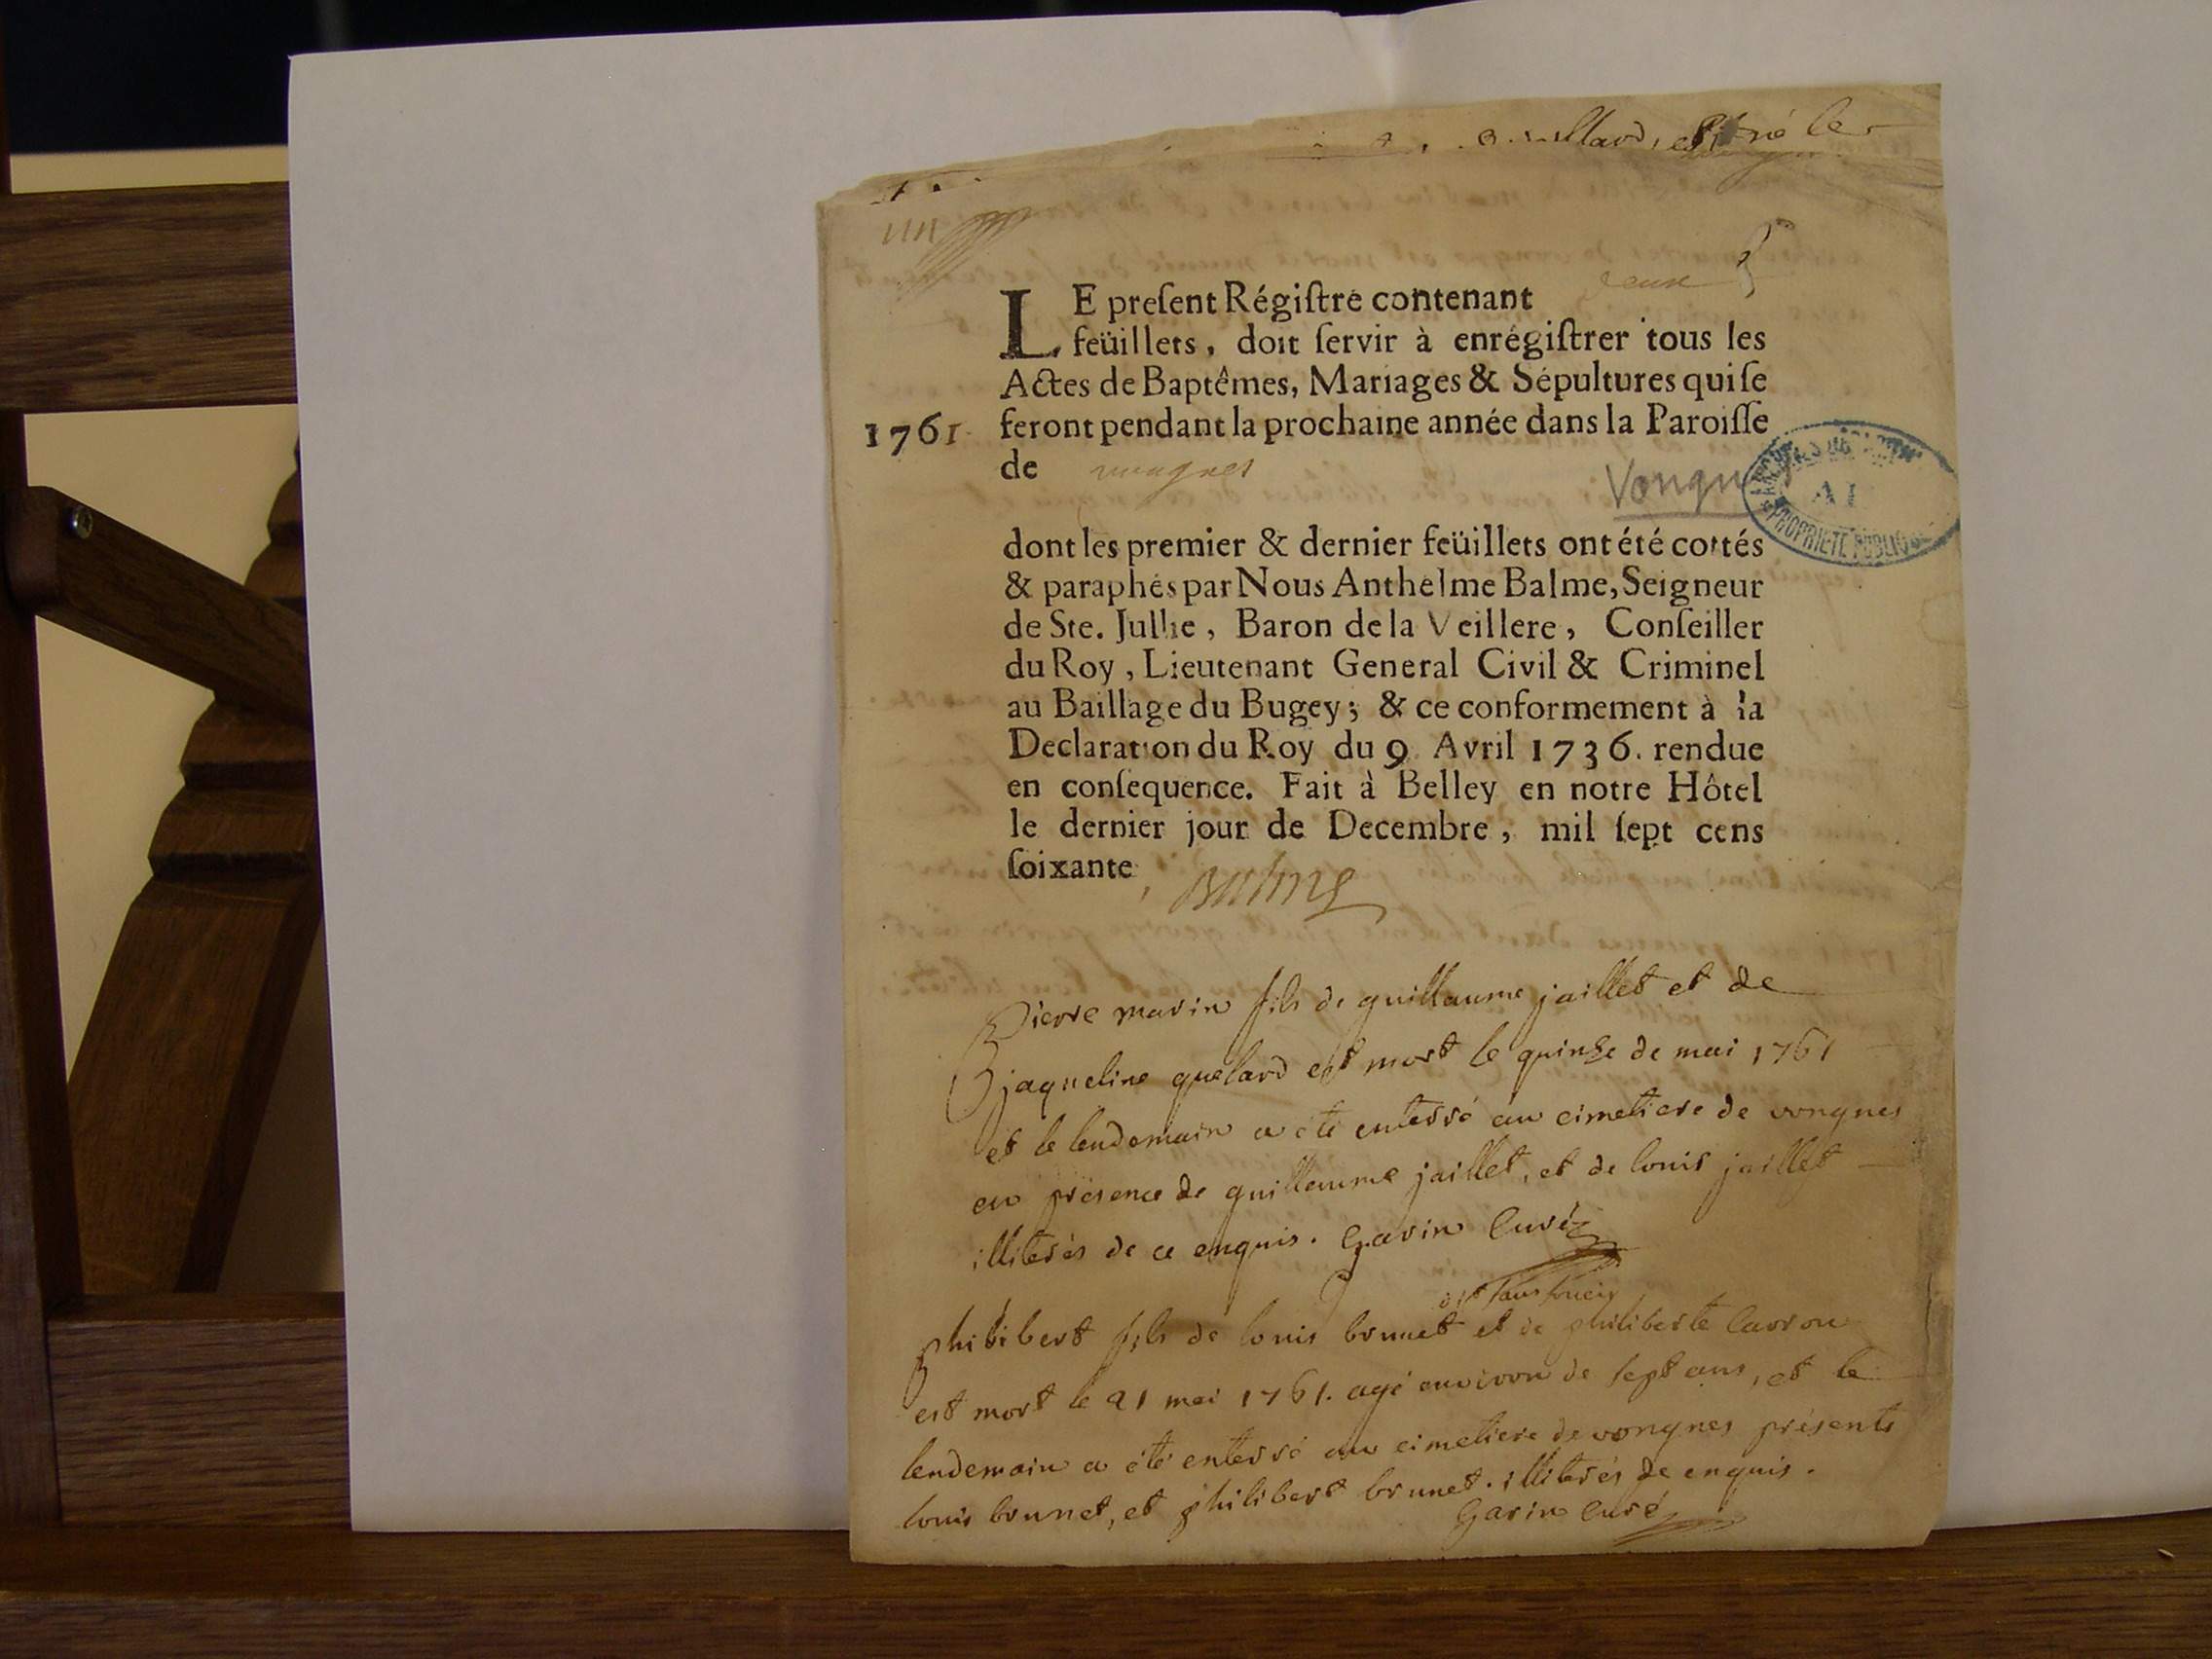 est né le
LE preſent Régiſtre contenant deux
feüillets, doit ſervir à enrégiſtrer tous les
Actes de Baptêmes, Mariages & Sépultures qui ſe
1761 feront pendant la prochaine année dans la Paroiſſe
de vongnes Vongnes
ARCHIVES DE L'AIN
PROPRIETE PUBLIQUE
dont les premier & dernier feüillets ont été cottés
& paraphés par Nous Anthelme Balme, Seigneur
de Ste. Jullie, Baron de la Veillere, Conſeiller
du Roy, Lieutenant General Civil & Criminel
au Baillage du Bugey; & ce conformement à la
Declaration du Roy du 9 Avril 1736. rendue
en conſequence. Fait à Belley en notre Hôtel
le dernier jour de Decembre, mil ſept cens
ſoixante, Balme
Pierre marin fils de guillaume jaillet et de
jaqueline quelard est mort le quinze de mai 1761
et le lendemain a été enterré au cimetiere de vongnes
en présence de guillaume jaillet, et de louis jaillet
illiterés de ce enquis. Garin Curé
dit
philibert fils de louis brunet et de philiberte carron
est mort le 21 mai 1761. agé environ de sept ans, et le
lendemain a été enterré au cimetiere de vongnes présents
louis brunet, et philibert brunet. illiterés de enquis.
Garin Curé